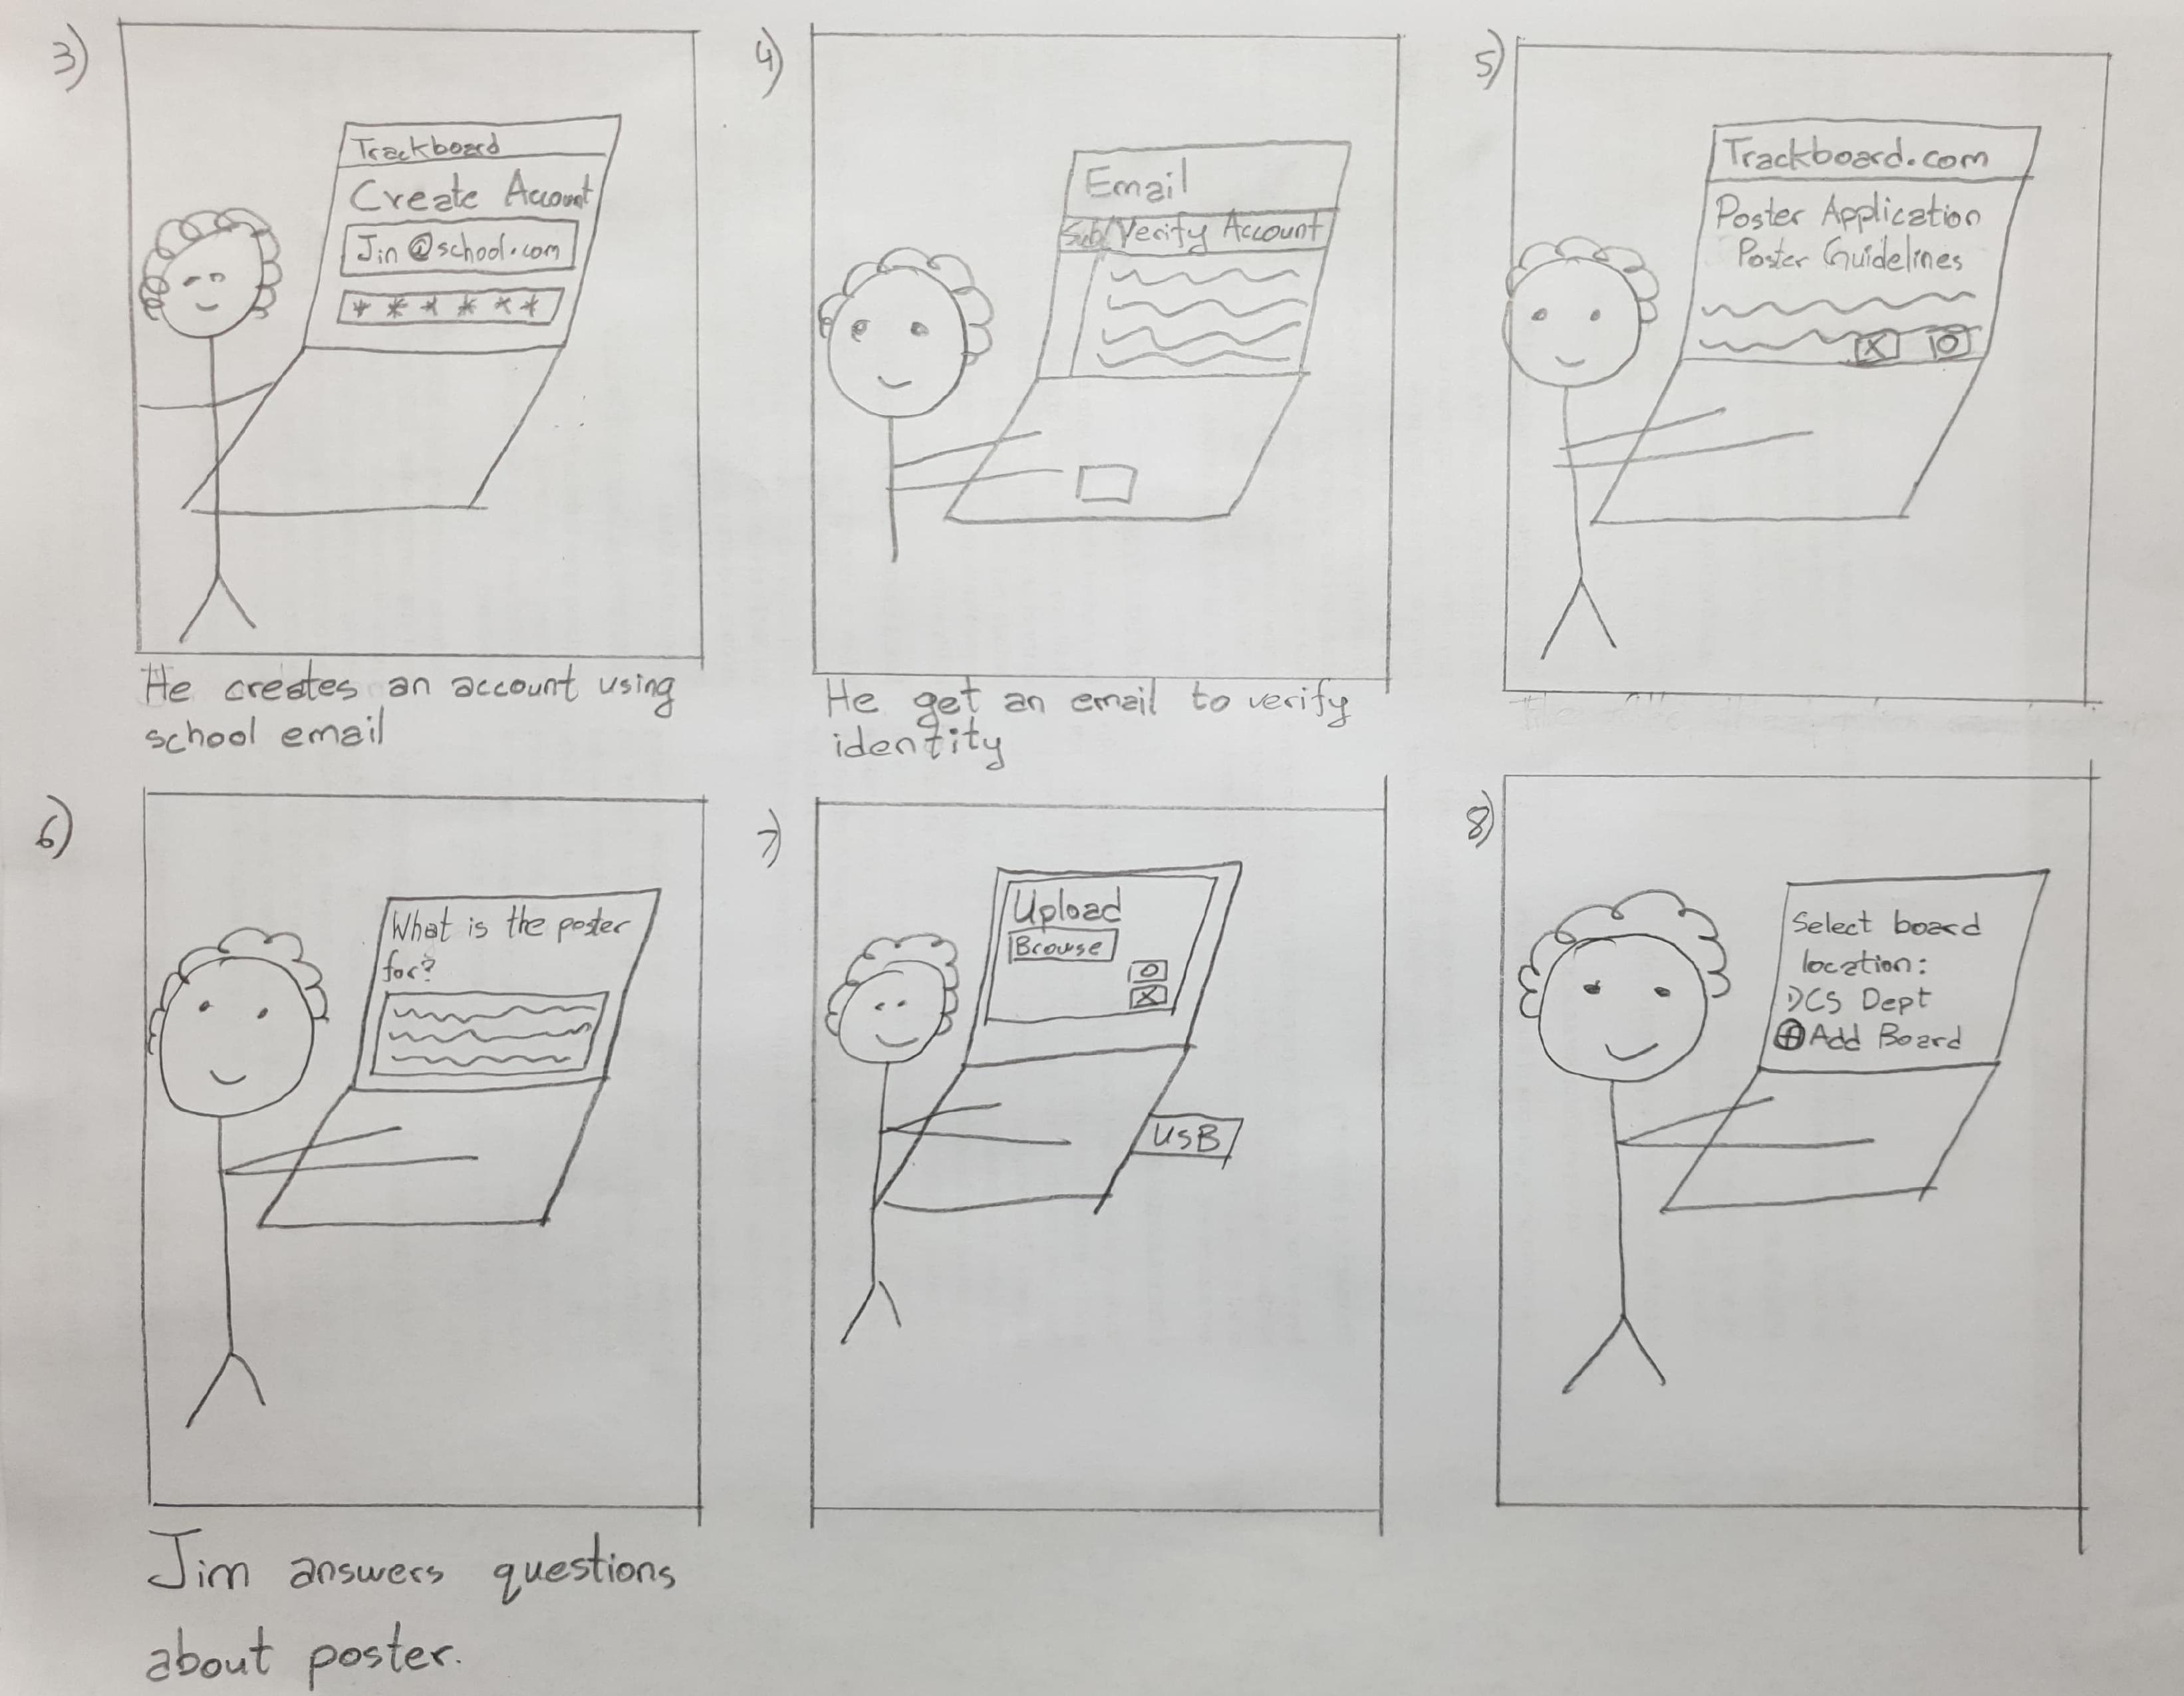 3)
Trackboard
Create Account
Jin@school.com
* * * * * *
He creates an account using
school email
4)
Email
Sub/Verify Account
He get an email to verify
identity
5)
Trackboard.com
Poster Application
Poster Guidelines
X O
6)
What is the poster
for?
Jim answers questions
about poster.
7)
Upload
Browse
O
X
USB
8)
Select board
location:
CS Dept
Add Board